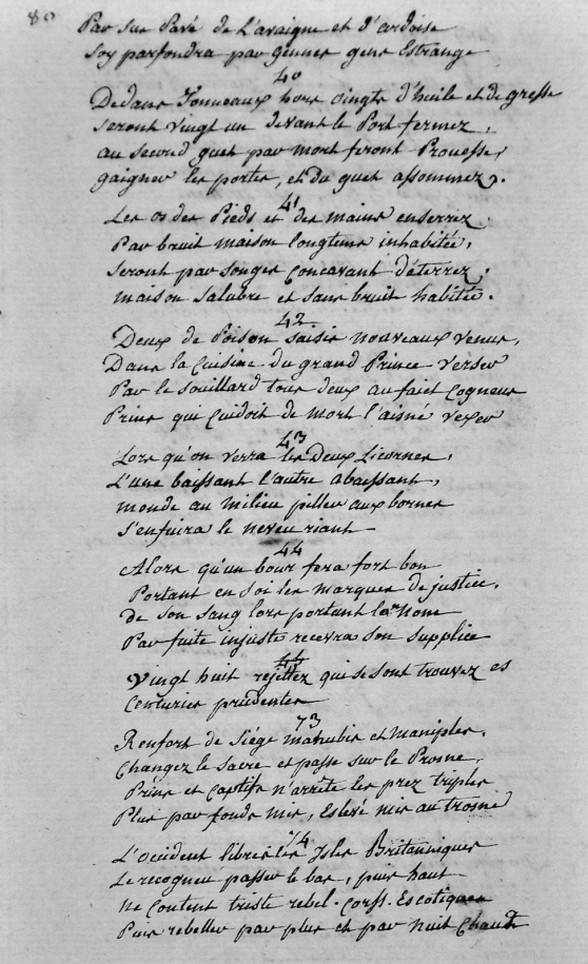 80
Par sus Pavé de l'araigne et d'ardoise
Soy parfondra par genner gent Estrange
40
Dedans Tonneaux hors oingts d'huile et de gresse
Seront Vingt un devant le Port fermez,
au second guet par mort feront Prouesse,
gaigner les portes, et du guet assommez.
41
Les os des Pieds et des mains enserrez
Par bruit maison longtems inhabitée,
Seront par songes Concavant déterrez,
maison Salubre et sans bruit habitée.
42
Deux de Poison saisis nouveaux venus,
Dans la Cuisine du grand Prince Verser
Par le Souillard tous deux au faict Cogneus
Prins qui Cuidoit de mort l'aisné vexer
43
Lors qu'on verra les Deux Licornes,
L'une baissant l'autre abaissant,
monde au milieu piller aux bornes
S'enfuira le neveu riant
44
Alors qu'un bour fera fort bon
Portant en soi les marques de justice,
de son sang lors portant son nom
Par fuite injuste recevra son supplice
Vingt huit rejettez qui se sont trouvez es
Centuries prudentes
73
Renfort de Siége manubis et maniples,
Changez le Sacre et passe sur le Prosne,
Prins et Captifs n'arrête les prez triples
Plus par fonds mis, Eslevé mis au trosne
74
L'occident libres les Isles Britanniques
Le recogneu passer le bas, puis haut
Ne Content triste rebel. Corss. Escotiques
Puis rebeller par plus et par nuit Chaude